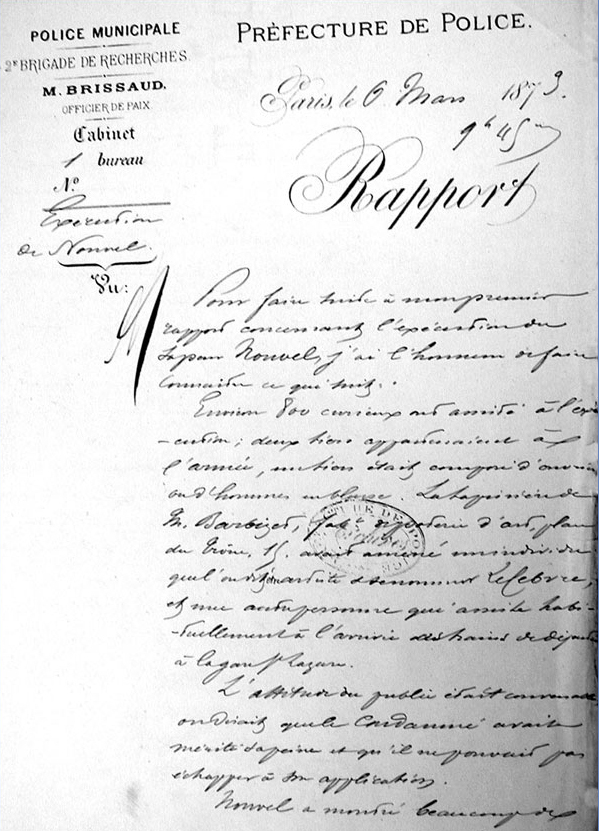 POLICE MUNICIPALE
2e BRIGADE DE RECHERCHES
M. BRISSAUD.
OFFICIER DE PAIX.
Cabinet
1 bureau
No
Exécution
de Nouvel.
Vu:
PRÉFECTURE DE POLICE.
Paris, le 6 Mars 1873.
9h 45m
Rapport
Pour faire suite à mon premier
rapport concernant l'exécution du
sapeur Nouvel, j'ai l'honneur de faire
connaître ce qui suit:
Environ 800 curieux ont assisté à l'exé
-cution; deux tiers appartenaient à
l'armée, un tiers était composé d'ouvriers
ou d'hommes en blouse. La tapissière de
M. Barbizet, d'art, place
du Trône, avait amené un individu
que l'on dit artiste et se nommer Lefebvre,
et une autre personne qui assiste habi-
-tuellement à l'arrivée des trains de
à la gare St Lazare.
L'attitude du public était convenable
on disait que le Condamné avait
mérité sa peine et qu'il ne pouvait pas
échapper à son application.
Nouvel a montré beaucoup de